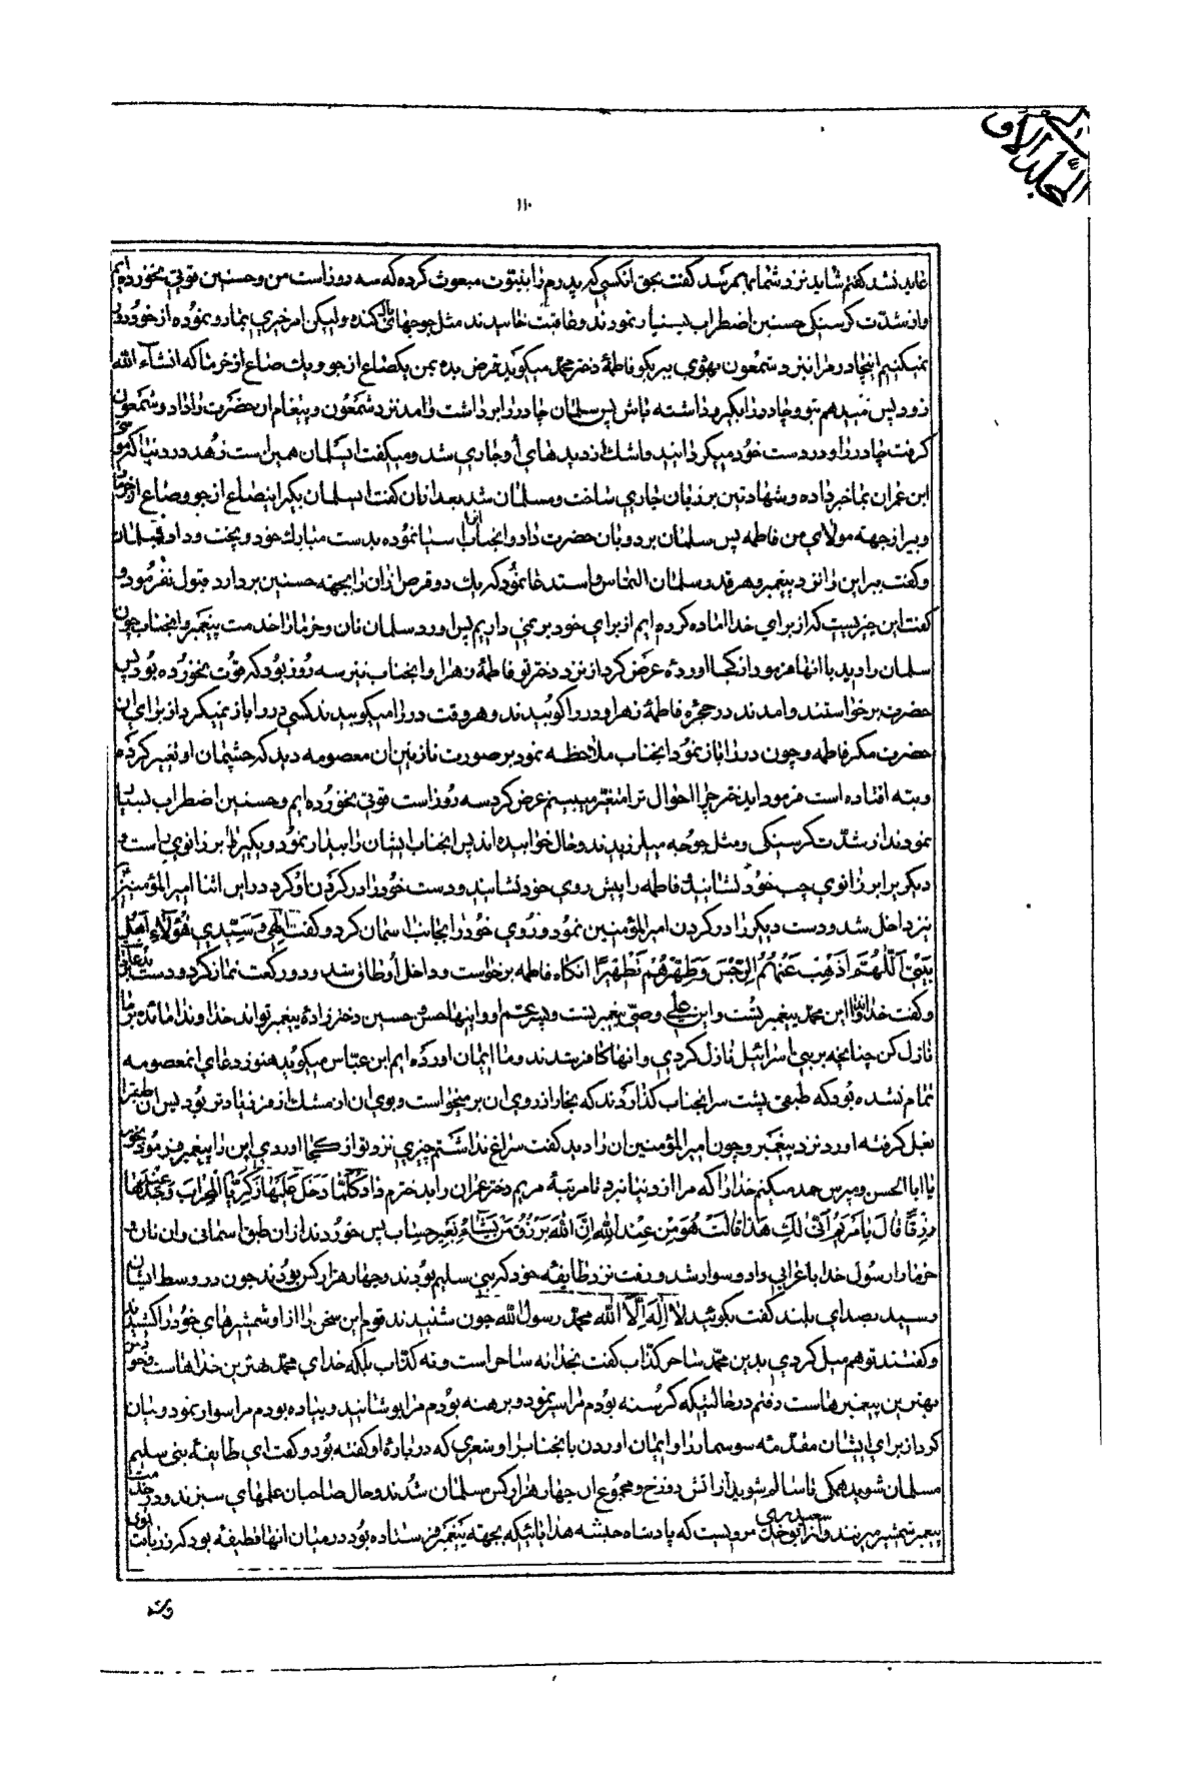 المجلد الاول
۱۱۰
عاید نشد گفتم شاید نزد شما بهم رسد گفت بحق انکسی که پدرم را بنبوت مبعوث کرده که سه روز است من و حسنین قوتی نخورده‌ایم
و از شدت گرسنگی حسنین اضطراب بسیار نمودند و عاقبت خوابیدند مثل جوجهای پر کنده ولیکن امر خیری بما رو نموده از خود رد
نمیکنیم این چادر مرا نزد شمعون یهودی ببر بگو فاطمهٔ دختر محمد میگوید قرض بده بمن یکصاع از جو و یک صاع از خرما که انشآء الله
زود پس میدهم بتو و چادر را بگیر پس سلمان چادر را برداشت و آمد نزد شمعون و پیغام ان حضرت را داد و شمعون
گرفت چادر را و در دست خود میگردانید و اشک از دیدهای او جاری شد و میگفت ایسلمان همین است زهد در دنیا که موسی
ابن عمران بما خبر داده و شهادتین بر زبان جاری ساخت و مسلمان شد بعد از ان گفت ایسلمان بگیر اینصاع از جو و صاع از خرما
و ببر از جهة مولای من فاطمه پس سلمان برد و بان حضرت داد و انجناب اسیا نموده بدست مبارک خود و پخت و داد بسلمان
و گفت ببر این را نزد پیغمبر و هر قدر سلمان التماس و استدعا نمود که یک دو قرص از ان را بجهة حسنین بردارد قبول نفرمود و
گفت این چیزیست که از برای خدا اماده کرده‌ایم از برای خود بر نمی داریم پس اورد سلمان نان و خرما را خدمت پیغمبر و انجناب چون
سلمان را دید با انها فرمود از کجا اوردهٔ عرض کرد از نزد دختر تو فاطمهٔ زهرا و انجناب نیز سه روز بود که قوت نخورده بود پس
حضرت برخواستند و امدند در حجرهٔ فاطمهٔ زهرا و در را کوبیدند و هر وقت در را میکوبیدند کسی در را باز نمیکرد از برای ان
حضرت مگر فاطمه و چون در را باز نمود انجناب ملاحظه نمود بر صورت نازنین ان معصومه دید که چشمان او تغییر کرده
و بته افتاده است فرمود ایدختر چرا احوال ترا متغیر میبینم عرض کرد سه روز است قوتی نخورده‌ایم و حسنین اضطراب بسیار
نمودند از شدت گرسنگی و مثل جوجه میلرزیدند و حال خوابیده‌اند پس انجناب ایشان را بیدار نمود و یکیرا بر زانوی راست و
دیگری را بر زانوی چپ خود نشانید و فاطمه را پیش روی خود نشانید و دست خود را در گردن او کرد در این اثنا امیر المؤمنین
نیز داخل شد و دست دیگر را در گردن امیر المؤمنین نمود و روی خود را بجانب اسمان کرد و گفت الٰهی و سیدی هٰؤلاء اهل
بیتی اَللّٰهُمَّ اَذْهِبْ عَنْهُمُ الرِّجْسَ وَطَهِّرْهُمْ تَطْهِیرًا انگاه فاطمه برخواست و داخل اوطاق شد و دو رکعت نماز کرد و دست بدعا
و گفت خداوندا این محمد پیغمبر تست و این علی وصی پیغمبر تست و پسر عم او و اینها حسن و حسین دختر زادهٔ پیغمبر تواند خداوندا مائده بر ما
نازل کن چنانچه بر بنی اسرائیل نازل کردی و انها کافر شدند و ما ایمان اورده‌ایم ابن عباس میگوید هنوز دعای انمعصومه
تمام نشده بود که طبقی پشت سر انجناب گذاردند که بخار از روی ان برمیخواست و بوی ان از مشک اذفر زیادتر بود پس ان طبق را
بغل گرفته اورد نزد پیغمبر و چون امیر المؤمنین ان را دید گفت سراغ نداشتم چیزی نزد تو از کجا اوردی این را پیغمبر فرمود بخور
یا ابا الحسن و مپرس حمد میکنم خدا را که مرا از دنیا نبرد تا مرتبهٔ مریم دختر عمران را بدخترم داد کُلَّمٰا دَخَلَ عَلَیْهٰا زَکَرِیَّا الْمِحْرٰابَ وَجَدَ عِنْدَهٰا
رِزْقًا قٰالَ یٰا مَرْیَمُ اَنّٰی لَکِ هٰذٰا قٰالَتْ هُوَ مِنْ عِنْدِ اللّٰهِ اِنَّ اللّٰهَ یَرْزُقُ مَنْ یَشٰٓاءُ بِغَیْرِ حِسٰاب پس خوردند از ان طبق اسمانی و ان نان و
خرما را رسول خدا باعرابی داد و سوار شد و رفت نزد طایفهٔ خود که بنی سلیم بودند و چهار هزار کس بودند چون در وسط ایشان
رسید بصدای بلند گفت بگوئید لا اِلٰهَ اِلَّا اللّٰه محمد رسول الله چون شنیدند قوم این سخن را از او شمشیرهای خود را کشیدند
و گفتند تو هم میل کردی بدین محمد ساحر کذاب گفت بخدا نه ساحر است و نه کذاب بلکه خدای محمد بهترین خداهاست و خود
بهترین پیغمبرهاست رفتم در حالتیکه گرسنه بودم مرا سیر نمود و برهنه بودم مرا پوشانید و پیاده بودم مرا سوار نمود و بیان
کرد از برای ایشان مقدمه سوسمار را و ایمان اوردن بانجناب را و شعری که در بارهٔ او گفته بود و گفت ای طایفهٔ بنی سلیم
مسلمان شوید همگی تا سالم شوید از اتش دوزخ و مجموع ان چهار هزار کس مسلمان شدند و حال صاحبان علمهای سبزند و در خدمت
پیغمبر شمشیر میزنند و از ابو سعید خدری مرویست که پادشاه حبشه هدایائیکه بجهة پیغمبر فرستاده بود در میان انها قطیفهٔ بود که زربافت